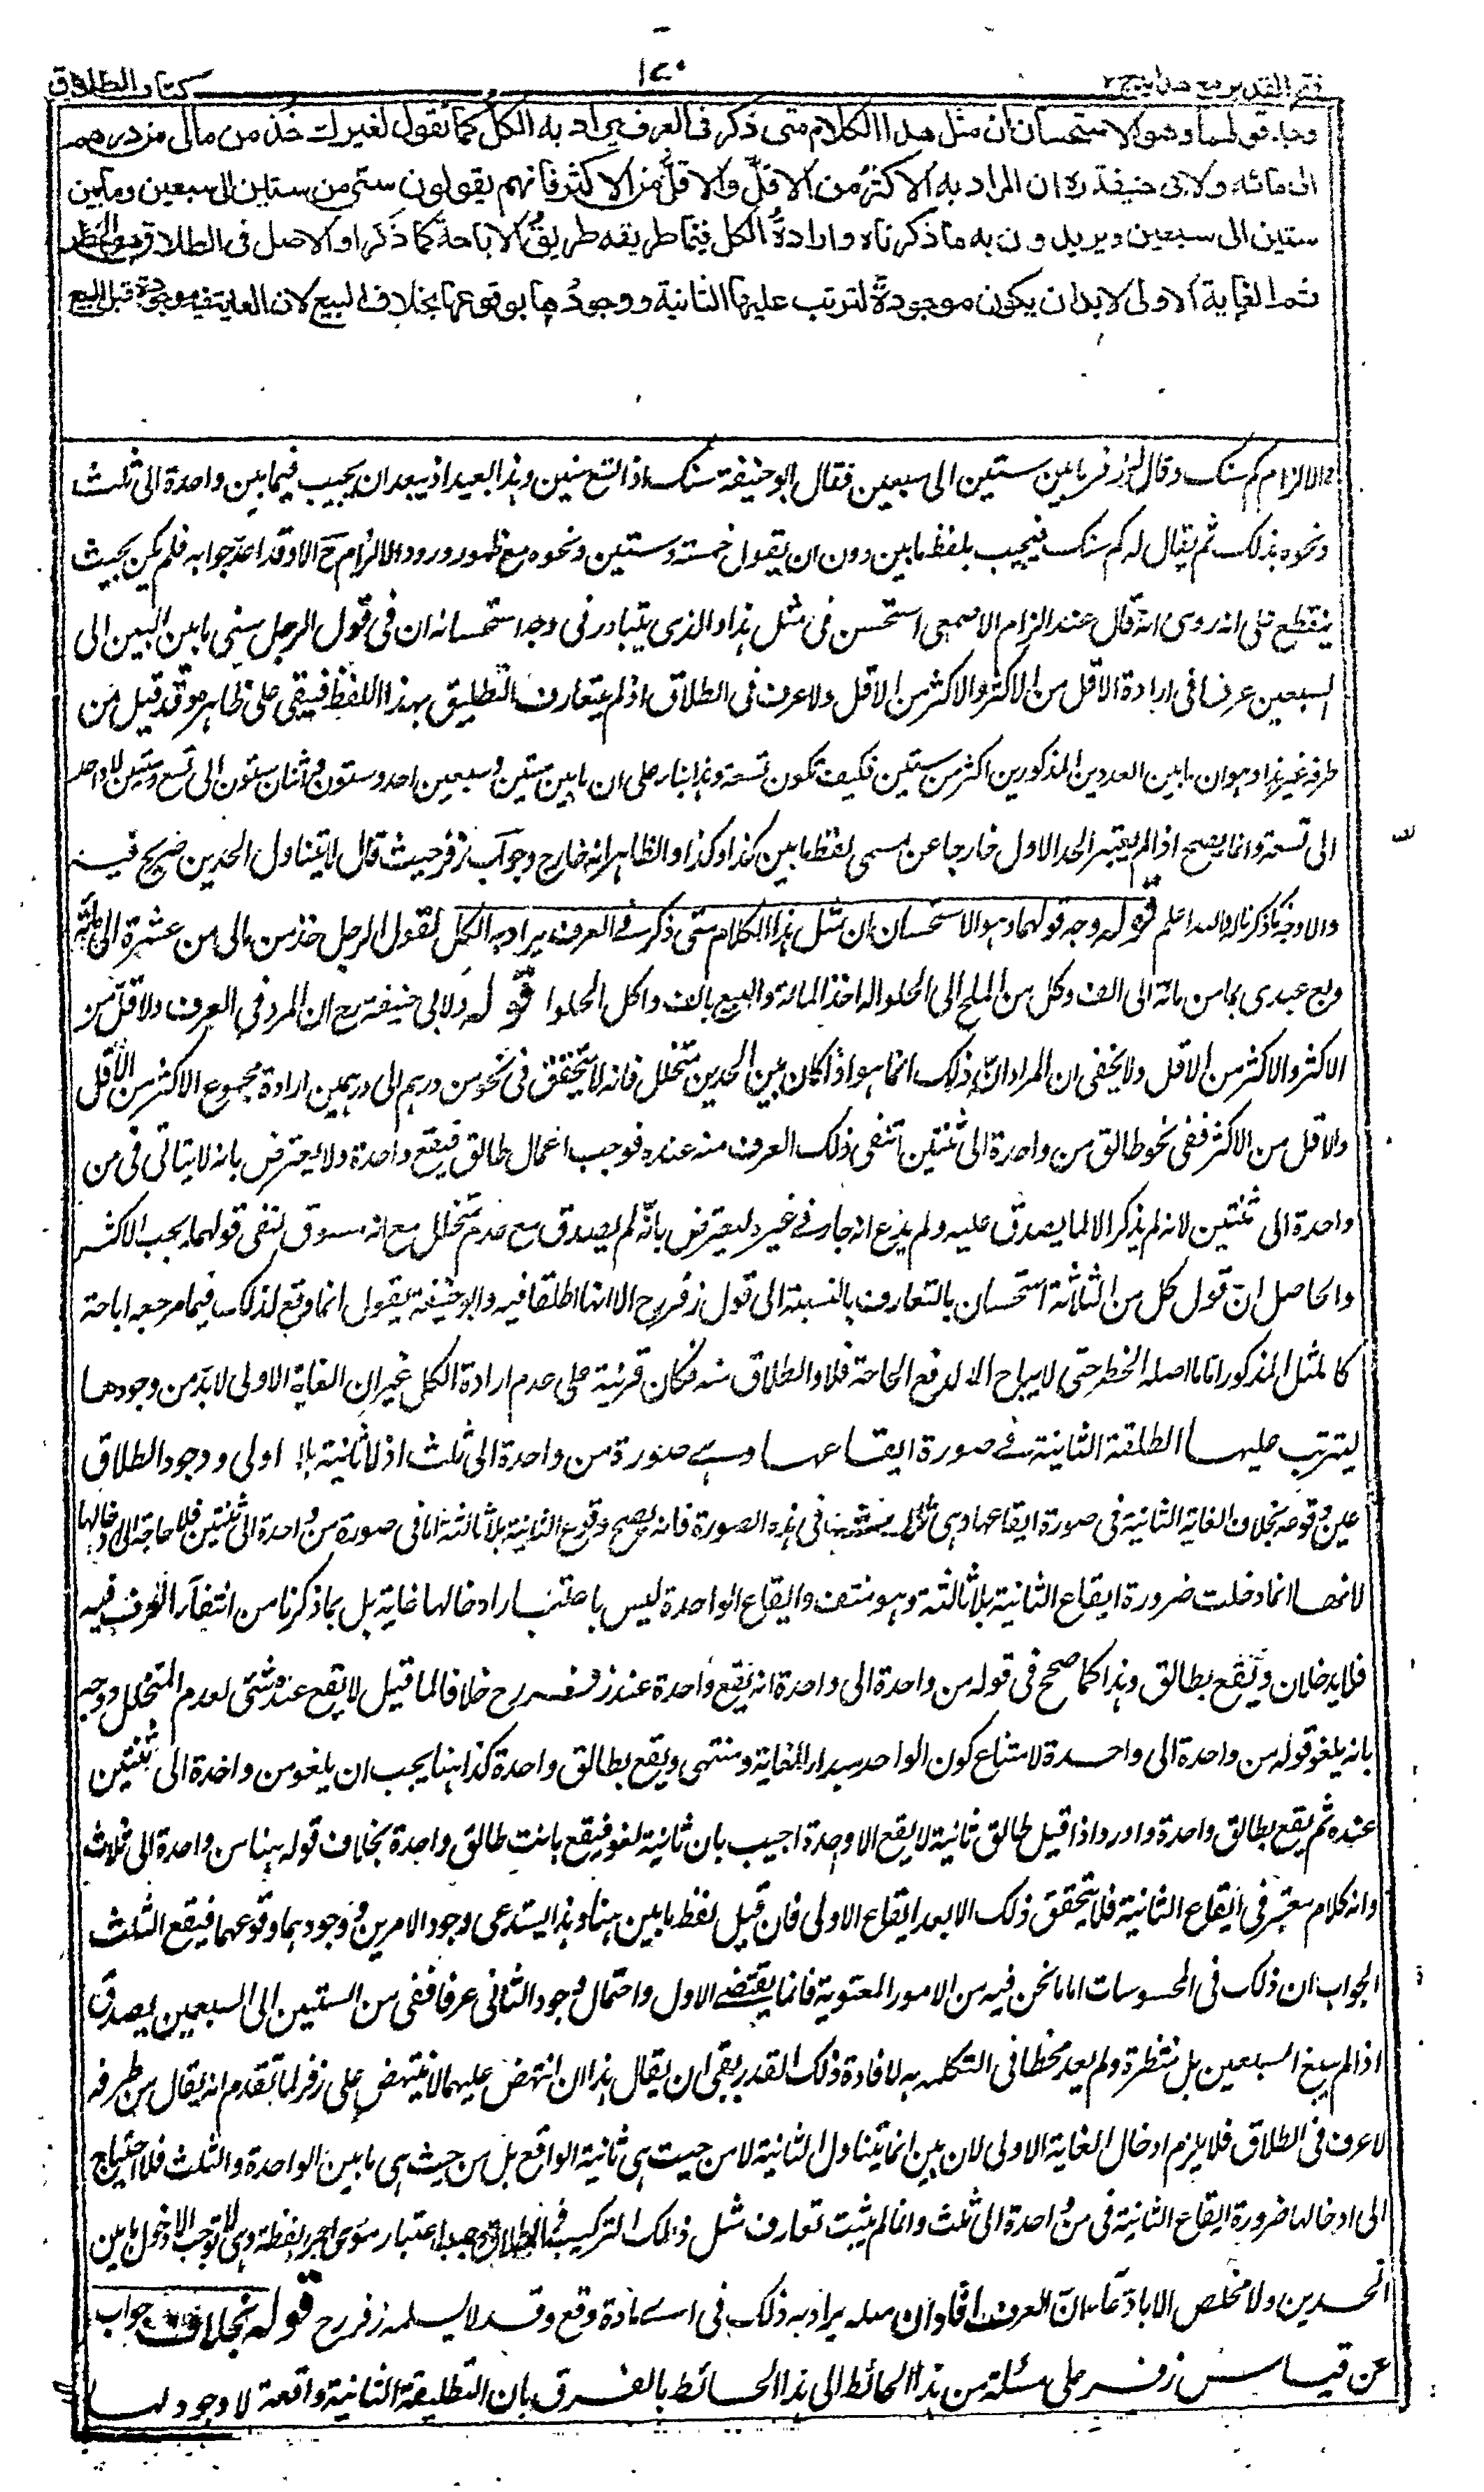 فتح القدير مع هدايه ج ٢
١٤٠
كتاب الطلاق
وجه قولهما وهو الاستحسان ان مثل هذا الكلام متى ذكر فى العرف يراد به الكل كما تقول لغيرك خذ من مالى من درهم
الى مائه ولابى حنيفة ره ان المراد به الاكثر من الاقل والاقل من الاكثر فانهم يقولون سنى من ستين الى سبعين وما بين
ستين الى سبعين ويريدون به ما ذكرناه وارادة الكل فيما طريقه طريق الاباحة كما ذكرا والاصل فى الطلاق هو الحظر
ثم الغاية الاولى لابد ان يكون موجودة لترتب عليها الثانية ووجودها بوقوعها بخلاف البيع لان الغاية فيه موجودة قبل البيع
والالزام كم سنك وقال لزفر ما بين ستين الى سبعين فقال ابو حنيفة سنك اذا تسع سنين وهذا بعيد اذ يبعد ان يجيب فيما بين واحدة الى ثلث
ونحوه بذلك ثم يقال له كم سنك فيجيب بلفظ ما بين دون ان يقول خمسة وستين ونحوه مع ظهور ورود الالزام ح الا وقد اعد جوابه فلم يكن بحيث
ينقطع على انه روى انه قال عند الزام الاصمعى استحسن فى مثل هذا والذى يتبادر فى وجه استحسانه ان فى قول الرجل سنى ما بين الستين الى
السبعين عرفا فى ارادة الاقل من الاكثر والاكثر من الاقل ولا عرف فى الطلاق اذ لم يتعارف التطليق بهذا اللفظ فيبقى على ظاهره وقد قيل من
طرفه غير هذا وهو ان ما بين العددين المذكورين اكثر من ستين فكيف تكون تسعة وهذا بناء على ان ما بين ستين وسبعين احد وستون واثنان وستون الى تسع وستين لا واحد
الى تسعة وانما يصح اذا لم يعتبر الحد الاول خارجا عن مسمى لفظ ما بين كذا وكذا والظاهر انه خارج وجواب زفر حيث قال لا يتناول الحدين صريح فيه
والاوجه ما ذكرناه والله اعلم قوله وجه قولهما وهو الاستحسان ان مثل هذا الكلام متى ذكر فى العرف يراد به الكل لقول الرجل خذ من مالى من عشرة الى مائة
وبع عبدى بما من مائة الى الف وكل من الملح الى الحلوا له اخذ المائة والبيع بالف واكل الحلوا قوله ولابى حنيفة رح ان المراد فى العرف والاقل من
الاكثر والاكثر من الاقل ولا يخفى ان المراد ان ذلك انما هو اذا كان بين الحدين متخلل فانه لا يتحقق فى نحو من درهم الى درهمين ارادة مجموع الاكثر من الاقل
والاقل من الاكثر ففى نحو طالق من واحدة الى ثنتين انتفى ذلك العرف منه عنده فوجب اعمال طالق فيقع واحدة ولا يعترض بانه لا يتاتى فى من
واحدة الى ثنتين لانه لم يذكر الا لما يصدق عليه ولم يدع انه جار فى غيره ليعترض بانه لم يصدق مع عدم متخلل مع انه مسوق لنفى قولهما يجب الاكثر
والحاصل ان قول كل من الثلاثة استحسان بالتعارف بالنسبة الى قول زفر رح الا انهما اطلقا فيه وابو حنيفة يقول انما وقع لذلك فيما مرجعه اباحة
كالمثل المذكور اما ما اصله الحظر حتى لا يباح الا لدفع الحاجة فلا والطلاق منه فكان قرينة على عدم ارادة الكل غير ان الغاية الاولى لابد من وجودها
ليترتب عليها الطلقة الثانية فى صورة ايقاعها وهى صورة من واحدة الى ثلث اذ لا ثانية بلا اولى ووجود الطلاق
عين وقوعه بخلاف الغاية الثانية فى صورة ايقاعها وهى ثلث فى هذه الصورة فانه يصح وقوع الثانية بلا ثالثة اما فى صورة من واحدة الى ثنتين فلا حاجة الى ادخالها
لانها انما دخلت ضرورة ايقاع الثانية بلا ثالثة وهو منتف وايقاع الواحدة ليس باعتبار ادخالها غاية بل بما ذكرنا من انتفاء العرف فيه
فلا يدخلان ويقع بطالق وهذا كما صح فى قوله من واحدة الى واحدة انه يقع واحدة عند زفر رح خلافا لما قيل لا يقع عنده شئ لعدم المتخلل ووجه
بانه يلغو قوله من واحدة الى واحدة لامتناع كون الواحد مبدأ للغاية ومنتهى ويقع بطالق واحدة كذا ههنا يجب ان يلغو من واحدة الى ثنتين
عنده ثم يقع بطالق واحدة واورد اذا قيل طالق ثانية لا يقع الا واحدة اجيب بان ثانية لغو فيقع بانت طالق واحدة بخلاف قوله ههنا من واحدة الى ثلاث
وانه كلام معتبر فى ايقاع الثانية فلا يتحقق ذلك الا بعد ايقاع الاولى فان قيل لفظ ما بين هنا وهذا يستدعى وجود الامرين ووجودهما وقوعهما فيقع الثلث
الجواب ان ذلك فى المحسوسات اما ما نحن فيه من الامور المعنوية فانما يقتضى الاول واحتمال وجود الثانى عرفا ففى من الستين الى السبعين يصدق
اذا لم يبلغ السبعين بل منتظرة ولم يعد مخطأ فى التكلم به لافادة ذلك القدر بقى ان يقال هذا ان انتهض عليهما لا ينتهض على زفر لما تقدم انه يقال من طرفه
لا عرف فى الطلاق فلا يلزم ادخال الغاية الاولى لان بين انما يتناول الثانية لا من حيث هى ثانية الواقع بل من حيث هى ما بين الواحدة والثلث فلا احتياج
الى ادخالها ضرورة ايقاع الثانية فى من واحدة الى ثلث وانما لم يثبت تعارف مثل ذلك التركيب فى الطلاق وجب اعتبار مؤدى مجرد لفظه وهى لا توجب الا دخول ما بين
الحدين ولا مخلص الا بادعاء ان العرف افاد ان مثله يراد به ذلك فى اى مادة وقع وقد لا يسلمه زفر رح قوله بخلاف جواب
عن قياس زفر على مسئلة من هذا الحائط الى هذا الحائط بالفرق بان التطليقة الثانية واقعة لا وجود لها